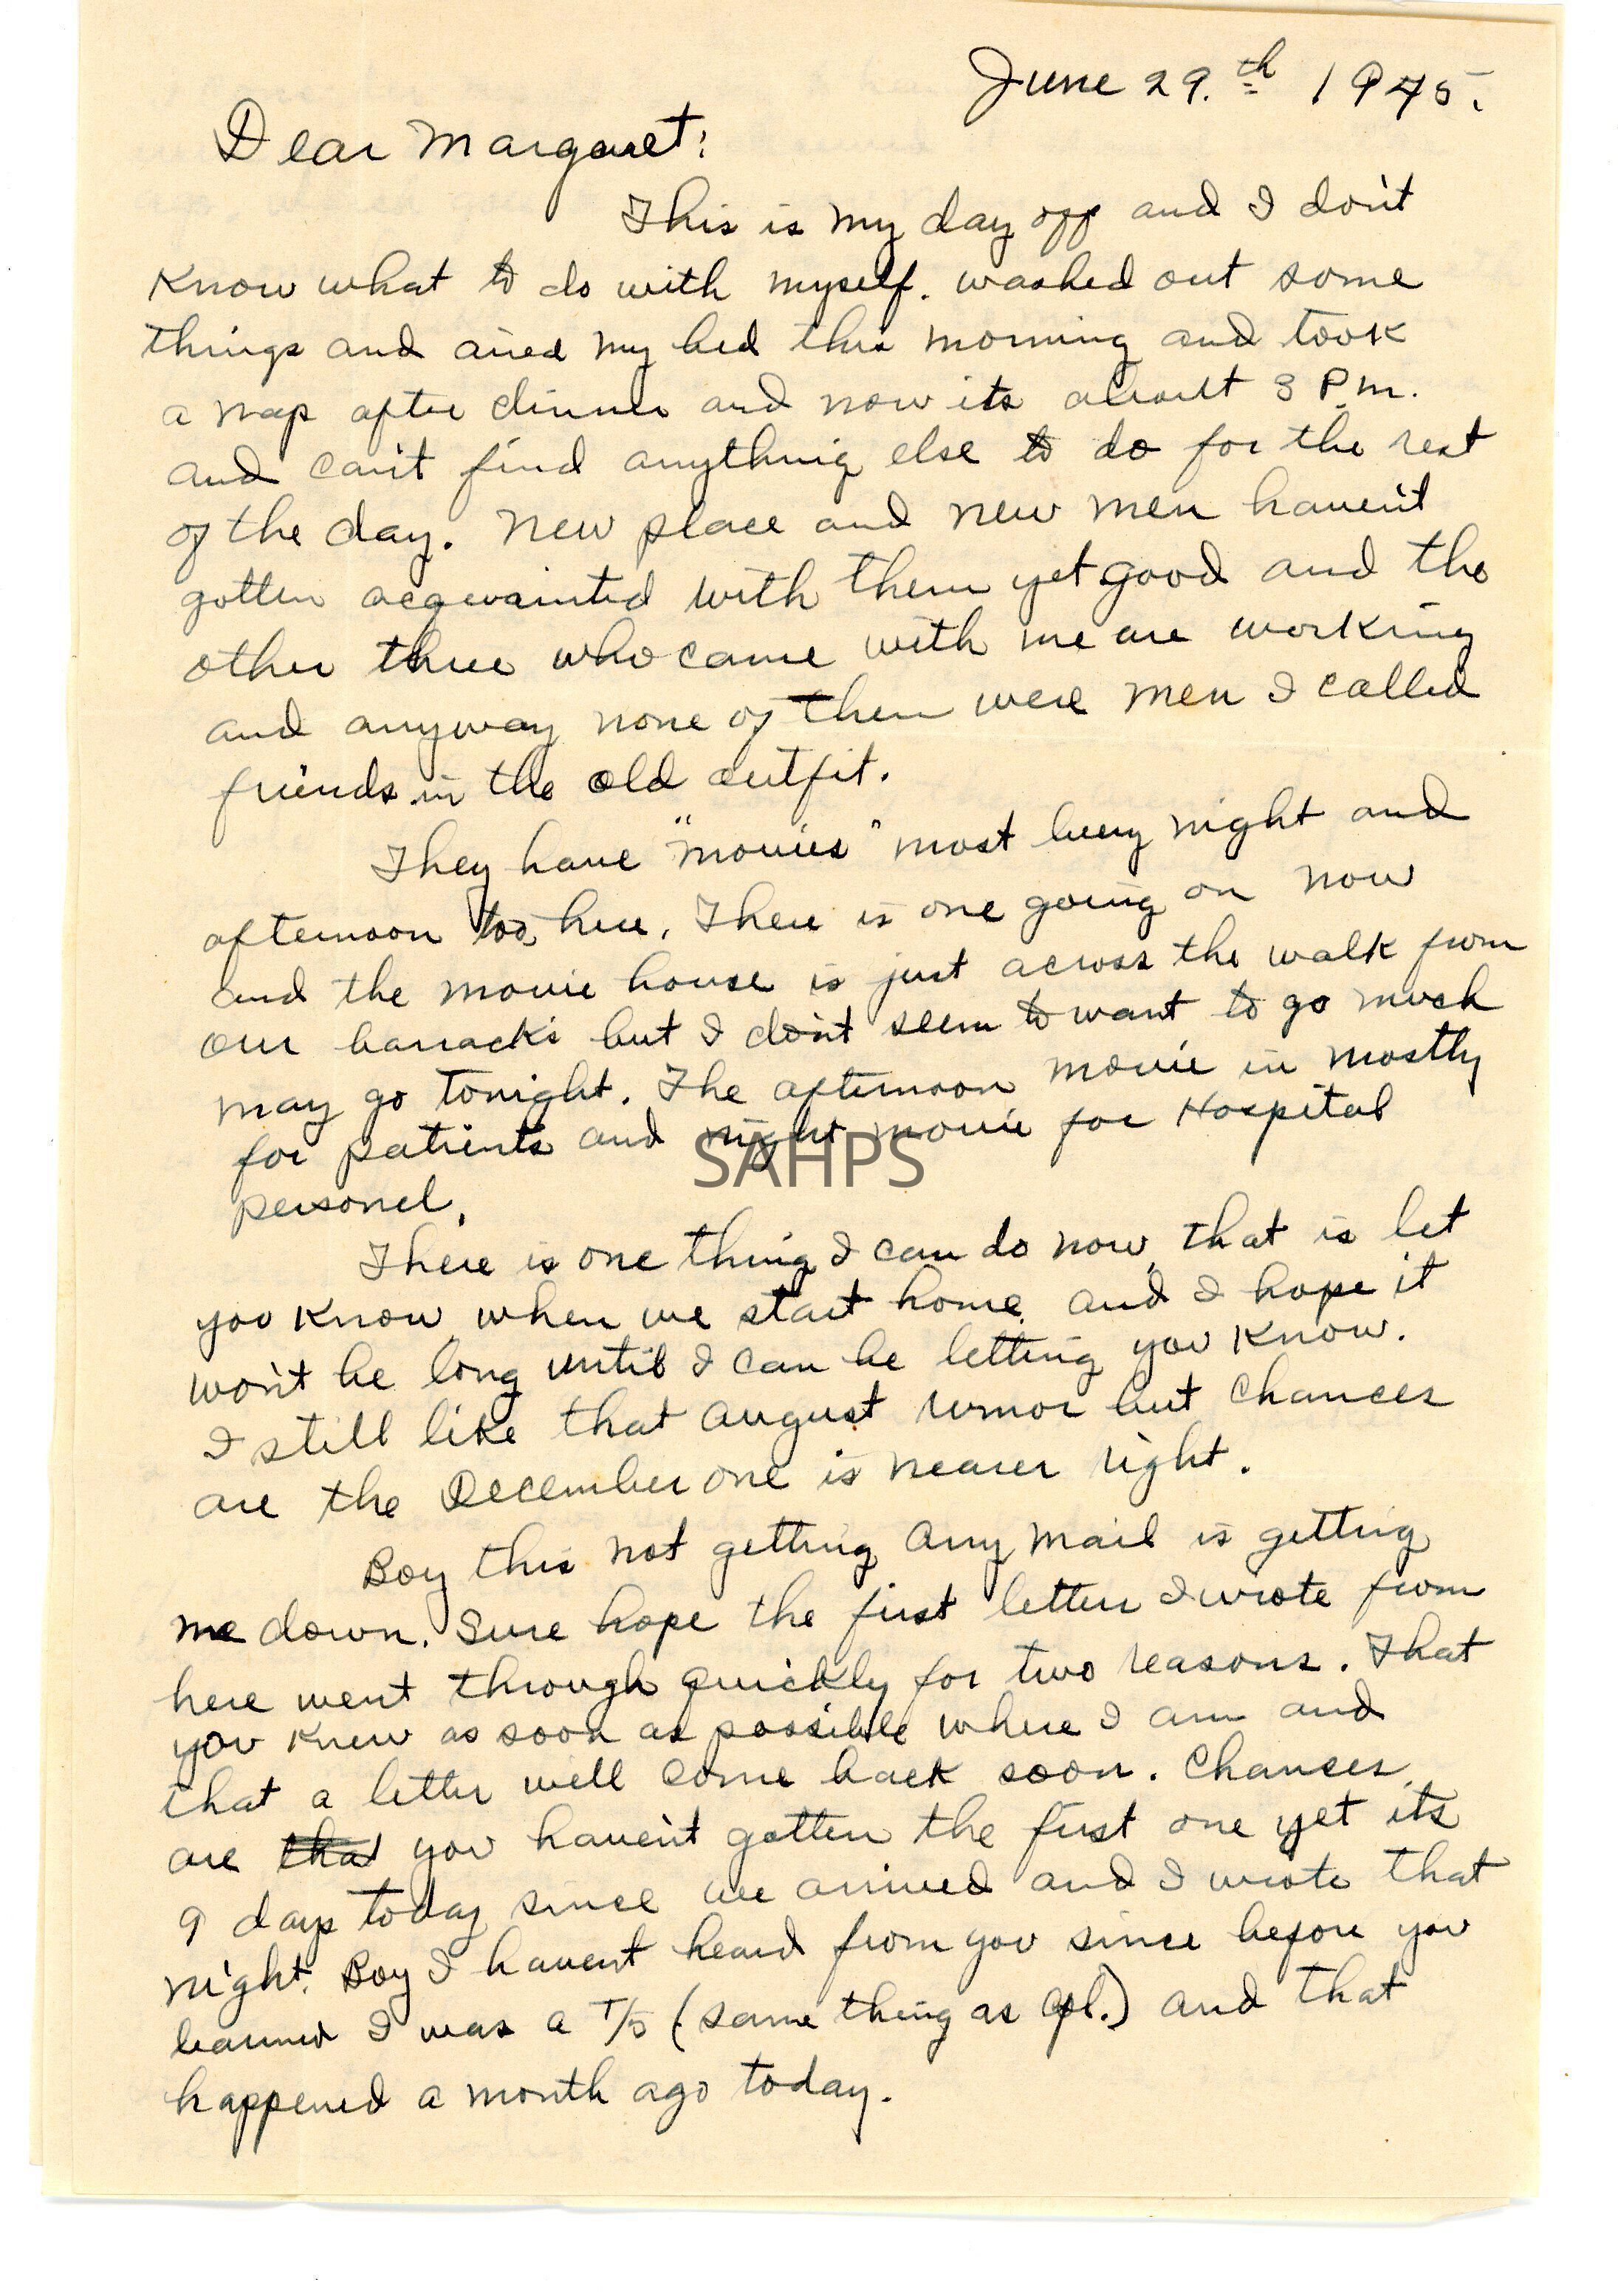 June 29.th 1945.
Dear Margaret:
This is my day off and I don't
Know what to do with myself. washed out some
things and aired my bed this morning and took
a nap after dinner and now its about 3 P.m.
and can't find anything else to do for the rest
of the day. New place and new men haven't
gotten acqwainted with them yet good and the
other three who came with me are working
and anyway none of them were men I called
friends in the old outfit.
They have "movies" most every night and
afternoon too, here. There is one going on now
and the movie house is just across the walk from
our barracks but I don't seem to want to go much
may go tonight. The afternoon movie in mostly
for patients and night movie for Hospital
SAHPS
personel.
There is one thing I can do now, that is let
you Know when we start home and I hope it
won't be long until I can be letting you Know.
I still like that August rumor but chances
are the December one is nearer right.
Boy this not getting any mail is getting
me down. Sure hope the first letter I wrote from
here went through quickly for two reasons. That
you Knew as soon as possible where I am and
that a letter will come back soon. Chances
are that you haven't gotten the first one yet its
9 days today since we arrived and I wrote that
night. Boy I havent heard from you since before you
learned I was a T/5 (same thing as Cpl.) and that
happened a month ago today.